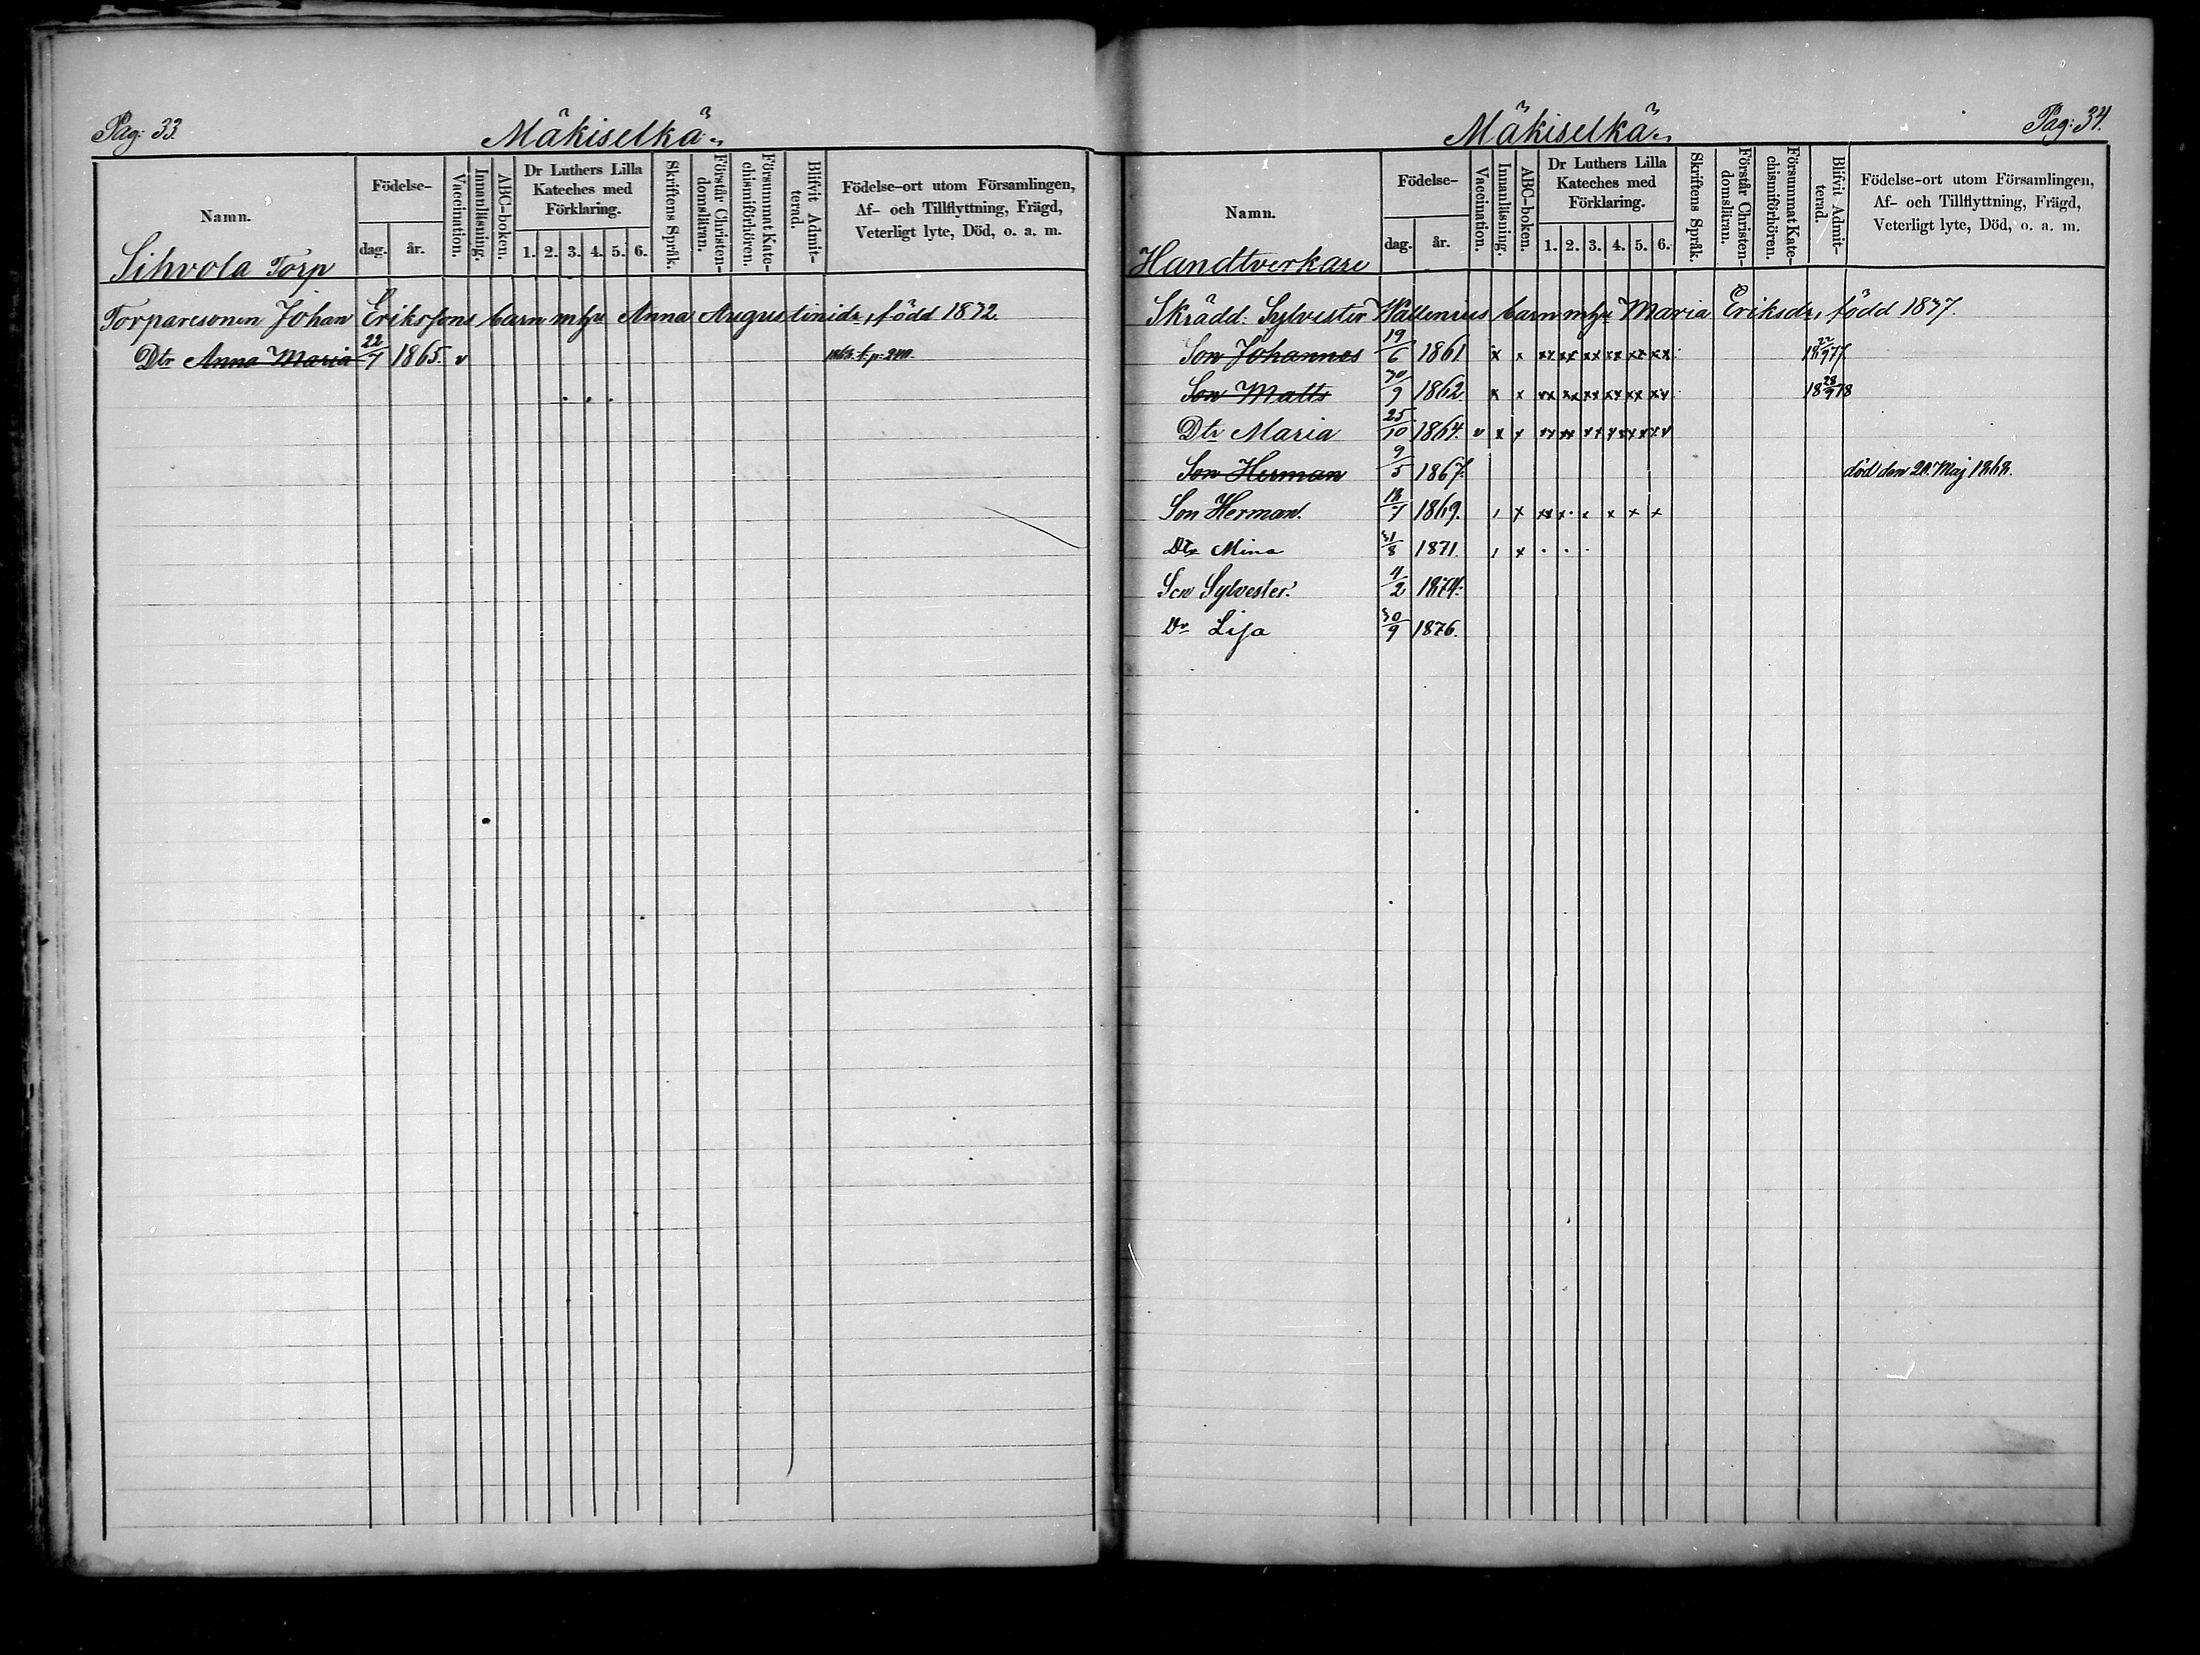 Pag: 33.
Mäkiselkä
Namn.
Födelse-
dag.
år.
Vaccination.
Innanläsning.
ABC-boken.
Dr Luthers Lilla
Kateches med
Förklaring.
1. 2. 3. 4. 5. 6.
Skriftens Språk.
Förstår Christen-
domsläran.
Försummat Kate-
chismiförhören.
Blifvit Admit-
terad.
Födelse-ort utom Församlingen,
Af- och Tillflyttning, Frägd,
Veterligt lyte, Död, o. a. m.
Sihvola Torp
Torparesonen Johan Eriksons barn mhu Anna Augustinidr, född 1832.
Dtr Anna Maria 22/7 1865. v
Mäkiselkä
Pag: 34.
Namn.
Födelse-
dag.
år.
Vaccination.
Innanläsning.
ABC-boken.
Dr Luthers Lilla
Kateches med
Förklaring.
1. 2. 3. 4. 5. 6.
Skriftens Språk.
Förstår Christen-
domsläran.
Försummat Kate-
chismiförhören.
Blifvit Admit-
terad.
Födelse-ort utom Församlingen,
Af- och Tillflyttning, Frägd,
Veterligt lyte, Död, o. a. m.
Handtverkare
Skrädd. Sylvester Wallenius barn mhu Maria Eriksdr, född 1837.
Son Johannes 19/6 1861 x x xx xx xx xx xx xx 18 22/9 77.
Son Matts 30/9 1862 x x xx xx xx xx xx xx 18 28/9 78
Dtr Maria 25/10 1864. v x x xx xx xx xx xx xx
Son Herman 9/5 1867. död den 20 Maj 1868.
Son Herman. 18/7 1869. x xx x x x x
Dtr Mina 31/8 1871. x
Son Sylvester. 4/2 1874.
Dr Lisa 30/9 1876.